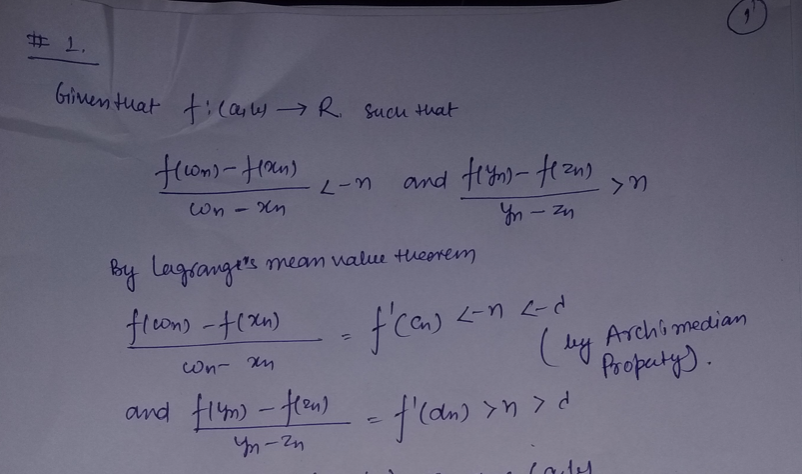 1
# 1.
Given that f : (a,b) → R. such that
f(ωn) - f(xn) / ωn - xn < -n and f(yn) - f(zn) / yn - zn > n
By Lagrange's mean value theorem
f(ωn) - f(xn) / ωn - xn = f'(cn) < -n < -d (by Archimedian Property).
and f(yn) - f(zn) / yn - zn = f'(dn) > n > d